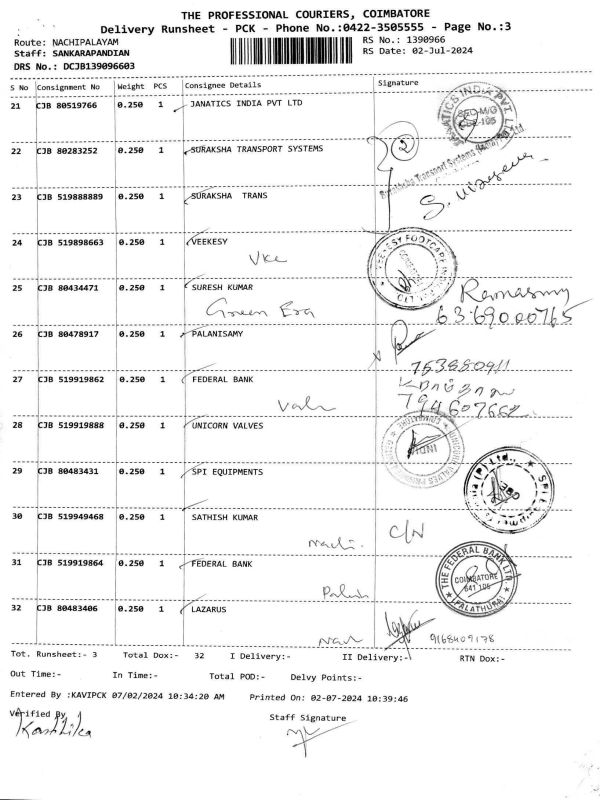 THE PROFESSIONAL COURIERS, COIMBATORE
Delivery Runsheet - PCK - Phone No.:0422-3505555 - Page No.:3
Route: NACHIPALAYAM
RS No.: 1390966
Staff: SANKARAPANDIAN
RS Date: 02-Jul-2024
DRS No.: DCJB139096603
S No Consignment No Weight PCS Consignee Details Signature
21 CJB 80519766 0.250 1 JANATICS INDIA PVT LTD
JANATICS INDIA PVT. LTD
22 CJB 80283252 0.250 1 SURAKSHA TRANSPORT SYSTEMS
2
23 CJB 519888889 0.250 1 SURAKSHA TRANS
24 CJB 519898663 0.250 1 VEEKESY
Vkc
25 CJB 80434471 0.250 1 SURESH KUMAR
Green Era
Ramasmy
6369000765
26 CJB 80478917 0.250 1 PALANISAMY
27 CJB 519919862 0.250 1 FEDERAL BANK
28 CJB 519919888 0.250 1 UNICORN VALVES
29 CJB 80483431 0.250 1 SPI EQUIPMENTS
30 CJB 519949468 0.250 1 SATHISH KUMAR
C/N
31 CJB 519919864 0.250 1 FEDERAL BANK
THE FEDERAL BANK LTD.
COIMBATORE
641 105
PALATHURAI
32 CJB 80483406 0.250 1 LAZARUS
9168409178
Tot. Runsheet:- 3 Total Dox:- 32 I Delivery:- II Delivery:- RTN Dox:-
Out Time:- In Time:- Total POD:- Delvy Points:-
Entered By :KAVIPCK 07/02/2024 10:34:20 AM Printed On: 02-07-2024 10:39:46
Verified By
Staff Signature
Karthika